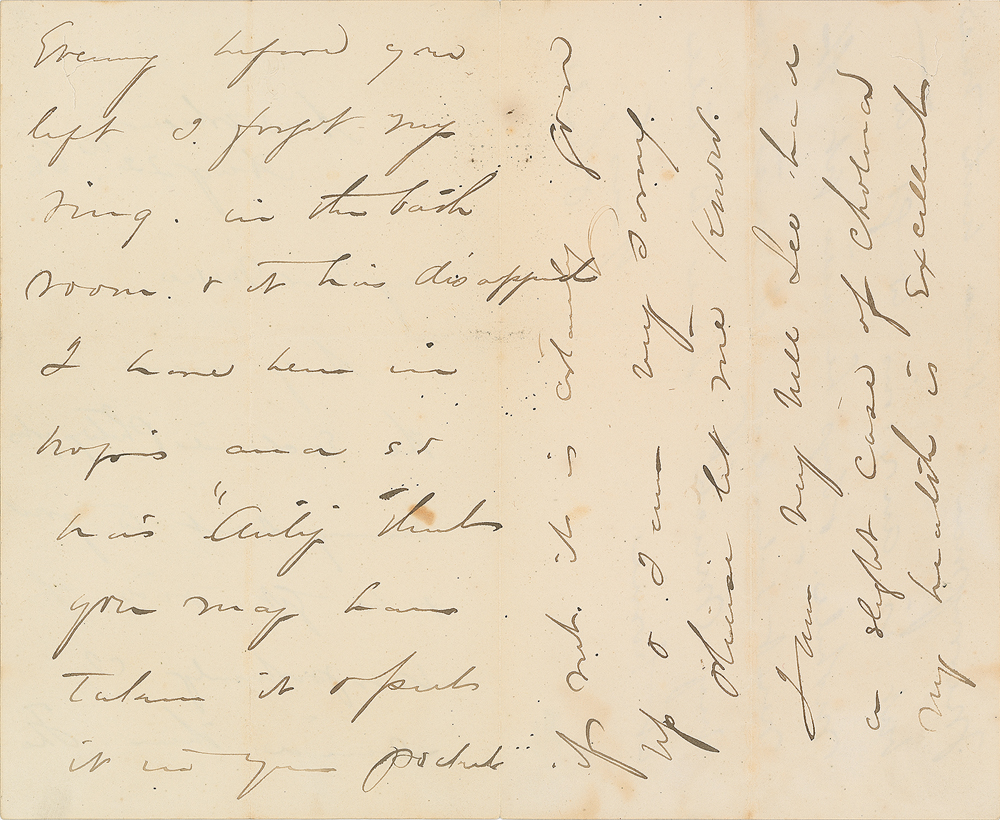 Evening before you
left I forgot my
ring. in the bath
room. & it has disappd
I have been in
hopes and so
has "Anty" that
you may have
taken it & put
it in your pocket"
if not. it is certainly gone
up & I am very sorry.
please let me know.
I am very well Leo had
a slight case of Cholera
My health is Excellent